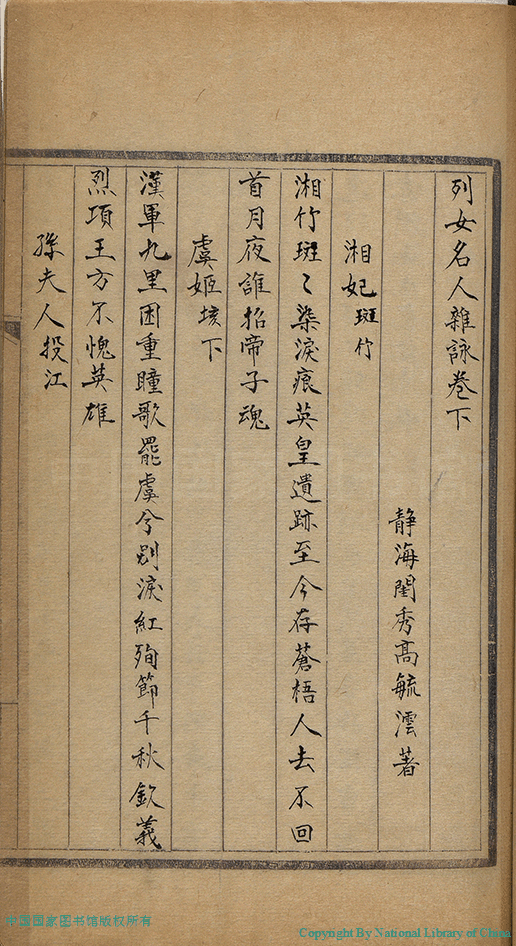 列女名人雜詠卷下
靜海閨秀高毓澐著
湘妃 斑竹
湘竹斑〻染淚痕英皇遺跡至今存蒼梧人去不回
首月夜誰招帝子魂
虞姬 垓下
漢軍九里困重瞳歌罷虞兮別淚紅殉節千秋欽義
烈項王方不愧英雄
孫夫人 投江
中国国家图书馆版权所有
Copyright By National Library of China